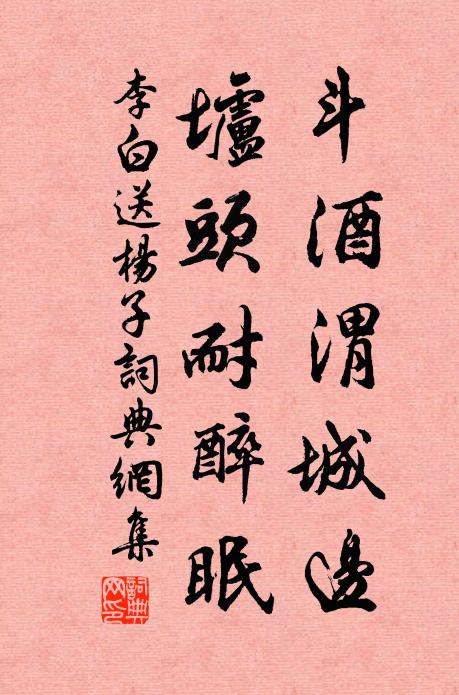 斗酒渭城邊
壚頭耐醉眠
李白送楊子詞典網集
詞典網印